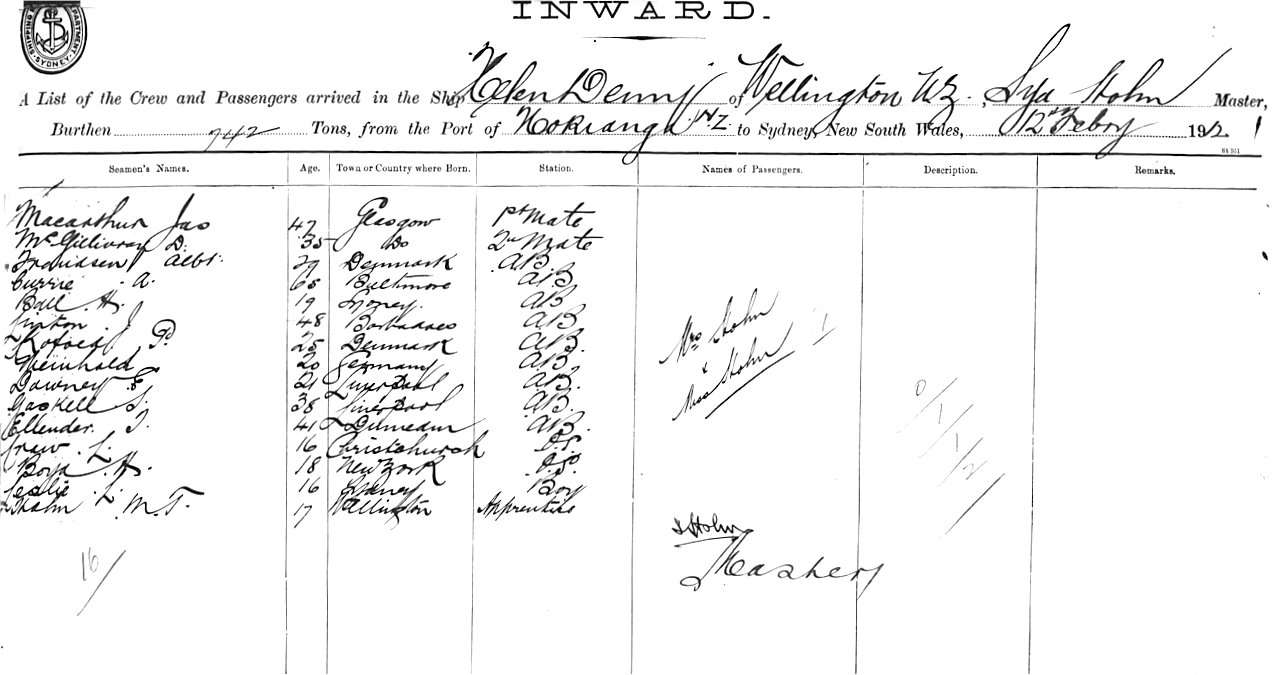 INWARD.
SHIPPING DEPARTMENT. SYDNEY.
A List of the Crew and Passengers arrived in the Ship Helen Denny of Wellington NZ., Master,
Burthen 742 Tons, from the Port of Hokianga N.Z. to Sydney, New South Wales, 12th Febry 1912.
Seamen's Names. Age. Town or Country where Born. Station. Names of Passengers. Description. Remarks.
Macarthur Jas 47 Glasgow 1st Mate
McGillivray D. 35 Do 2nd Mate
Albt. 29 Denmark AB.
Currie . A. 65 Baltimore AB
Ball H. 19 Sydney. AB
Linton . J 48 Barbadoes AB
Kofoed P. 25 Denmark AB.
Weinhold 20 Germany AB.
Downey E 21 Liverpool AB.
Gaskell S. 38 Liverpool AB.
Ellender. T. 41 AB.
Craw . L. 16 Christchurch O.S.
Boyd . H. 18 New York O.S.
Leslie . L. 16 Sydney Boy
Stohn M.T. 17 Wellington Apprentice
Mrs Stohn
&
Miss Stohn
0/1/1/2
I Stohn
Master
16